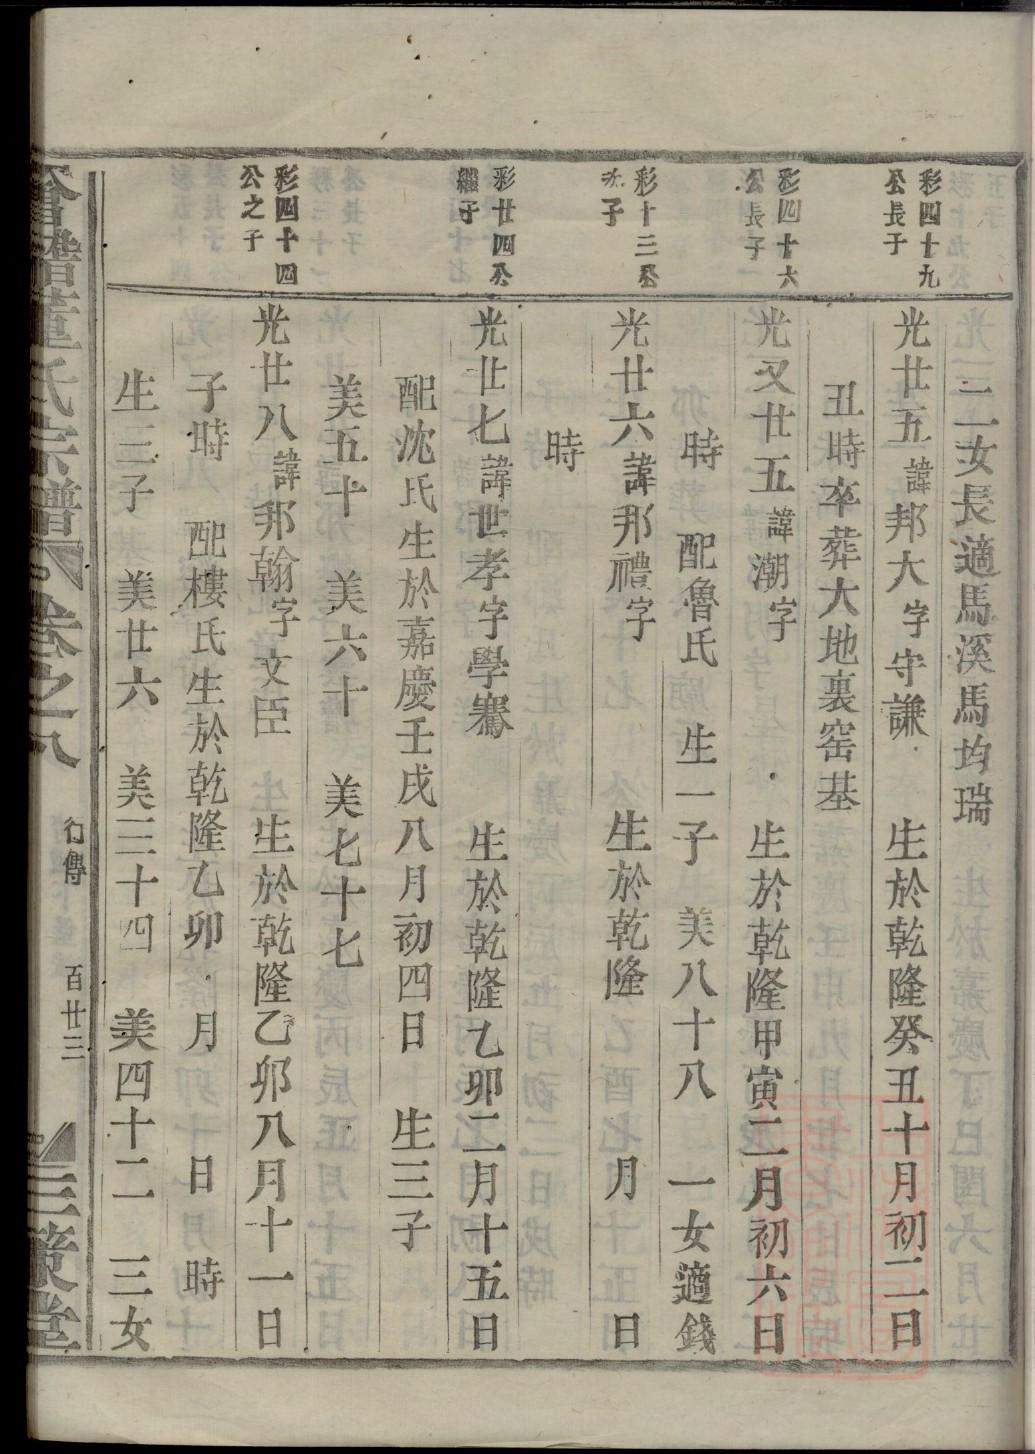 二女長適馬溪馬均瑞
彩四十九
公長子
光廿五諱邦大字守謙 生於乾隆癸丑十月初二日
丑時卒葬大地裏窑基
彩四十六
公長子
光又廿五諱潮字 生於乾隆甲寅二月初六日
時 配魯氏 生一子 美八十八 一女適錢
彩十三公
次子
光廿六諱邦禮字 生於乾隆 月 日
時
彩廿四公
繼子
光廿七諱世孝字學騫 生於乾隆乙卯二月十五日
配沈氏生於嘉慶壬戌八月初四日 生三子
美五十 美六十 美七十七
彩四十四
公之子
光廿八諱邦翰字文臣 生於乾隆乙卯八月十一日
子時 配樓氏生於乾隆乙卯 月 日 時
生三子 美廿六 美三十四 美四十二 三女
董氏宗譜 卷之八 行傳 百廿三 三策堂